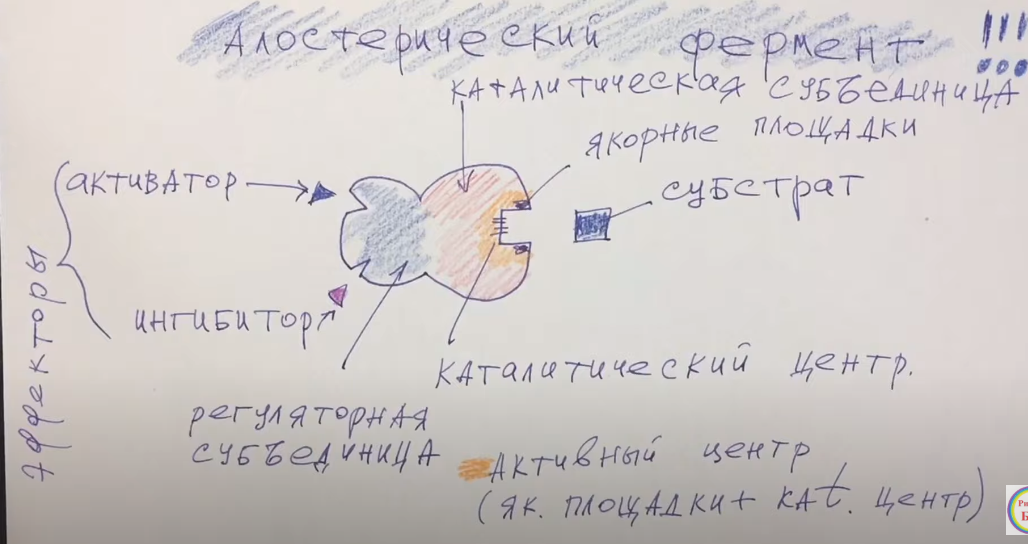 Алостерический фермент !!!
каталитическая субъединица
якорные площадки
активатор
субстрат
Эффекторы
ингибитор
каталитический центр.
регуляторная
субъединица
активный центр
(як. площадки + кат. центр)